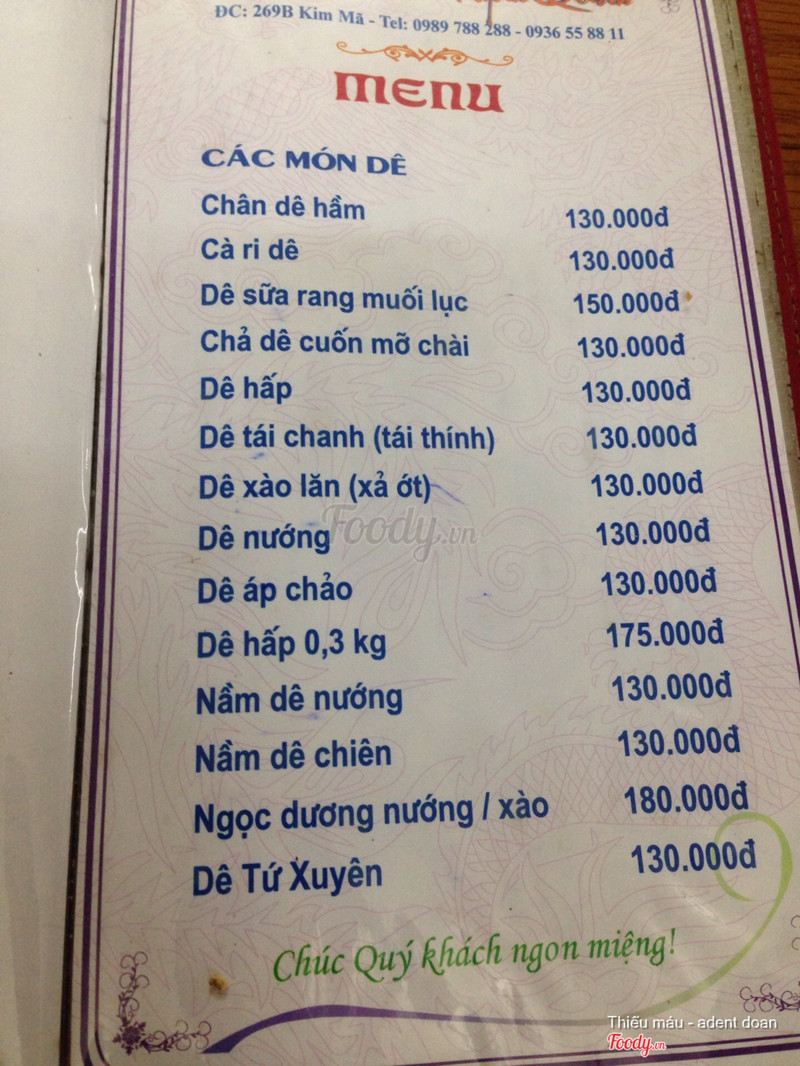 ĐC: 269B Kim Mã - Tel: 0989 788 288 - 0936 55 88 11
MENU
CÁC MÓN DÊ
Chân dê hầm 130.000đ
Cà ri dê 130.000đ
Dê sữa rang muối lục 150.000đ
Chả dê cuốn mỡ chài 130.000đ
Dê hấp 130.000đ
Dê tái chanh (tái thính) 130.000đ
Dê xào lăn (xả ớt) 130.000đ
Dê nướng 130.000đ
Dê áp chảo 130.000đ
Dê hấp 0,3 kg 175.000đ
Nầm dê nướng 130.000đ
Nầm dê chiên 130.000đ
Ngọc dương nướng / xào 180.000đ
Dê Tứ Xuyên 130.000đ
Chúc Quý khách ngon miệng!
Foody.vn
Thiếu máu - adent doan
Foody.vn